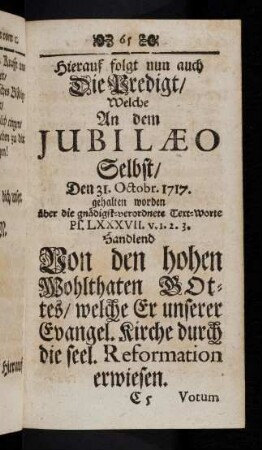 65
Hierauf folgt nun auch
Die Predigt/
Welche
An dem
JUBILÆO
Selbst/
Den 31. Octobr. 1717.
gehalten worden
über die gnädigst-verordnete Text-Worte
Ps. LXXXVII. v. 1. 2. 3.
Handlend
Von den hohen
Wohlthaten GOt-
tes/ welche Er unserer
Evangel. Kirche durch
die seel. Reformation
erwiesen.
C 5 Votum